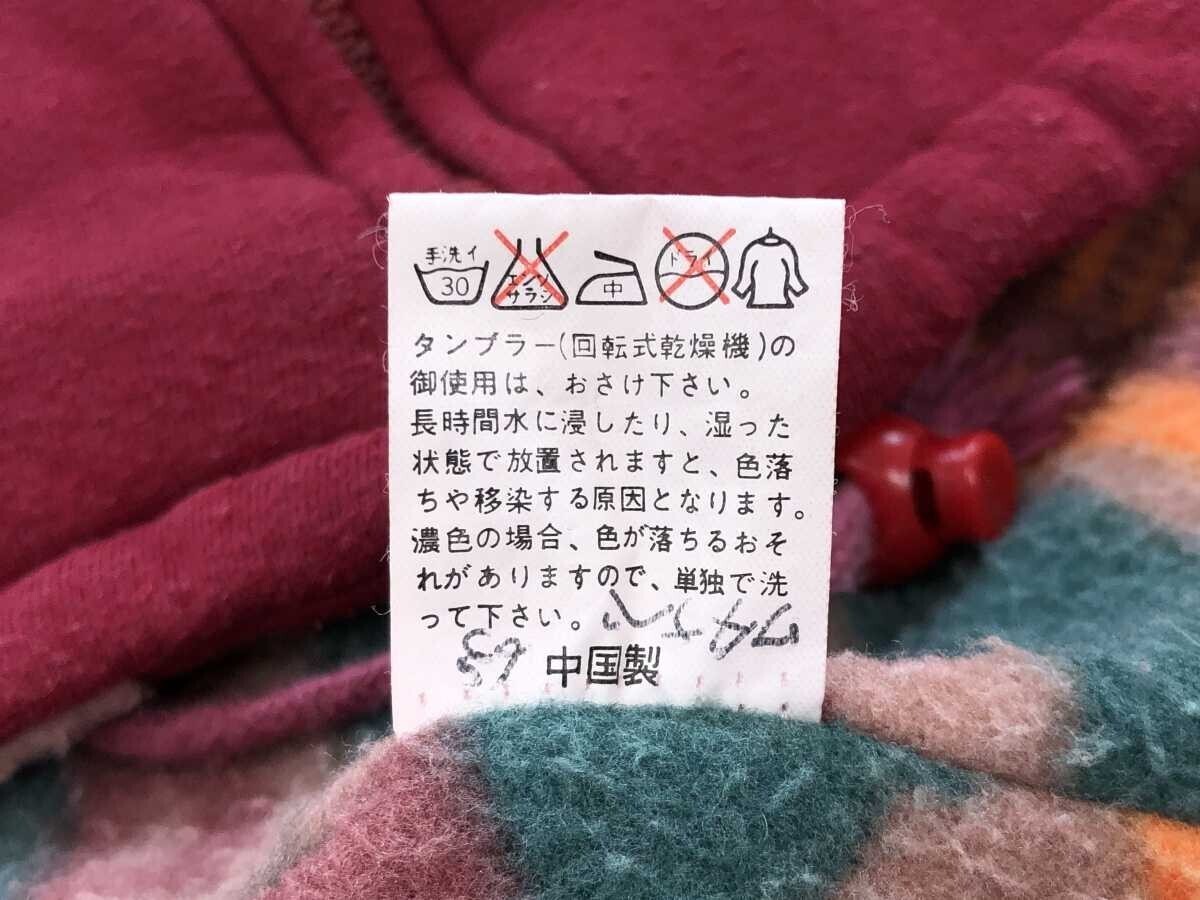 手洗イ
30
エンソ
サラシ
中
ドライ
タンブラー(回転式乾燥機)の
御使用は、おさけ下さい。
長時間水に浸したり、湿った
状態で放置されますと、色落
ちや移染する原因となります。
濃色の場合、色が落ちるおそ
れがありますので、単独で洗
って下さい。
中国製